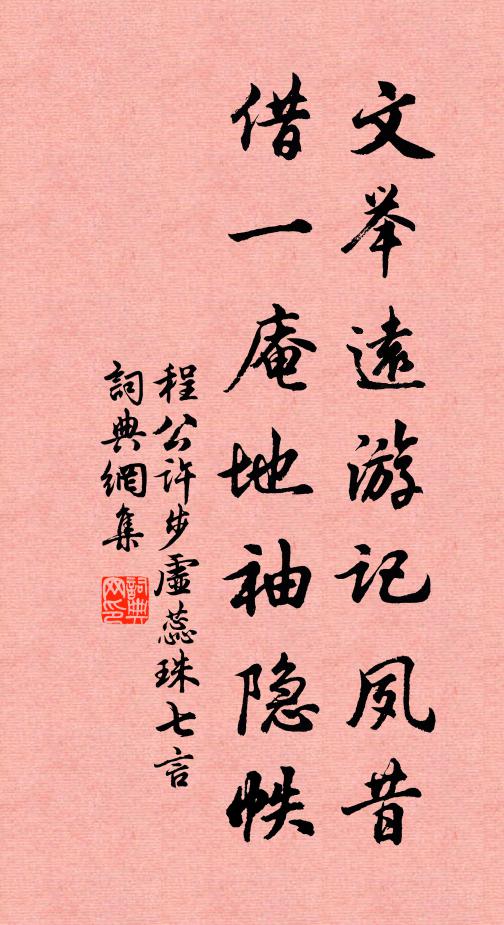 文举遠游记夙昔
借一庵地袖隐帙
程公许步虛蕊珠七言
詞典網集
詞典
网印